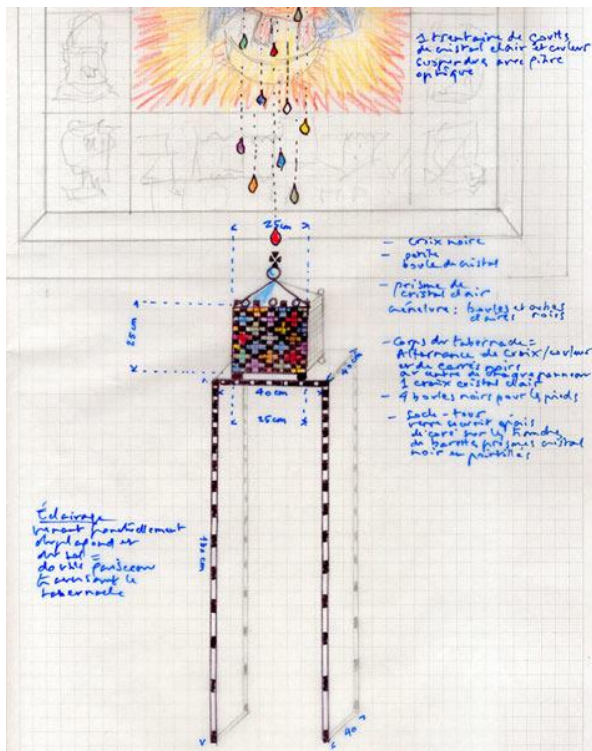 1 trentaine de gouttes
de cristal clair et couleurs
suspendues avec fibre
optique
25cm
- croix noire
- petite
boule de cristal
- prisme de
cristal clair
crénelure: boules et cubes
clairs noirs
25cm
- Corps du tabernacle =
Alternance de croix/couleur
et de carrés noirs
au centre de chaque panneau
1 croix cristal clair
- 4 boules noires pour les pieds
40cm
40cm
25cm
- Socle-tour
verre securit épais
décoré sur les tranches
de barrettes prismes cristal
noir en pointillés
Éclairage
venant ponctuellement
du plafond et
du sol =
double faisceau
traversant le
tabernacle
cm
40